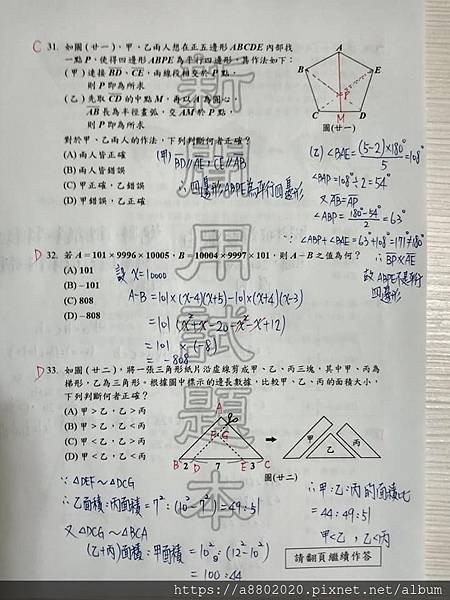 C 31. 如圖(廿一)，甲、乙兩人想在正五邊形 ABCDE 內部找
一點 P，使得四邊形 ABPE 為平行四邊形，其作法如下：
(甲) 連接 BD、CE，兩線段相交於 P 點，
則 P 即為所求
(乙) 先取 CD 的中點 M，再以 A 為圓心，
AB 長為半徑畫弧，交 AM 於 P 點，
則 P 即為所求
對於甲、乙兩人的作法，下列判斷何者正確？
(A) 兩人皆正確
(B) 兩人皆錯誤
(C) 甲正確，乙錯誤
(D) 甲錯誤，乙正確
A
B
E
P
C
M
D
圖(廿一)
(甲) BD∥AE, CE∥AB
∴ 四邊形ABPE為平行四邊形
(乙) ∠BAE=(5-2)×180°/5=108°
∠BAP=108°÷2=54°
又 AB=AP
∠ABP=180°-54°/2=63°
∴ ∠ABP+∠BAE=63°+108°=171°≠180°
∴ BP∦AE
故 ABPE不是平行
四邊形
D 32. 若 A=101×9996×10005，B=10004×9997×101，則 A−B 之值為何？
(A) 101
(B) −101
(C) 808
(D) −808
設 x=10000
A-B=101×(x-4)(x+5)-101×(x+4)(x-3)
=101(x²+x-20-x²-x+12)
=101×(-8)
=-808
D 33. 如圖(廿二)，將一張三角形紙片沿虛線剪成甲、乙、丙三塊，其中甲、丙為
梯形，乙為三角形。根據圖中標示的邊長數據，比較甲、乙、丙的面積大小，
下列判斷何者正確？
(A) 甲＞乙，乙＞丙
(B) 甲＞乙，乙＜丙
(C) 甲＜乙，乙＞丙
(D) 甲＜乙，乙＜丙
A
F
G
B 2 D 7 E 3 C
甲
乙
丙
圖(廿二)
∵ △DEF~△DCG
∴ 乙面積:丙面積=7²:(10²-7²)=49:51
又 △DCG~△BCA
(乙+丙)面積:甲面積=10²:(12²-10²)
=100:44
∴ 甲:乙:丙的面積比
=44:49:51
甲<乙，乙<丙
請翻頁繼續作答
新
用
試
題
本
https://a8802020.pixnet.net/album